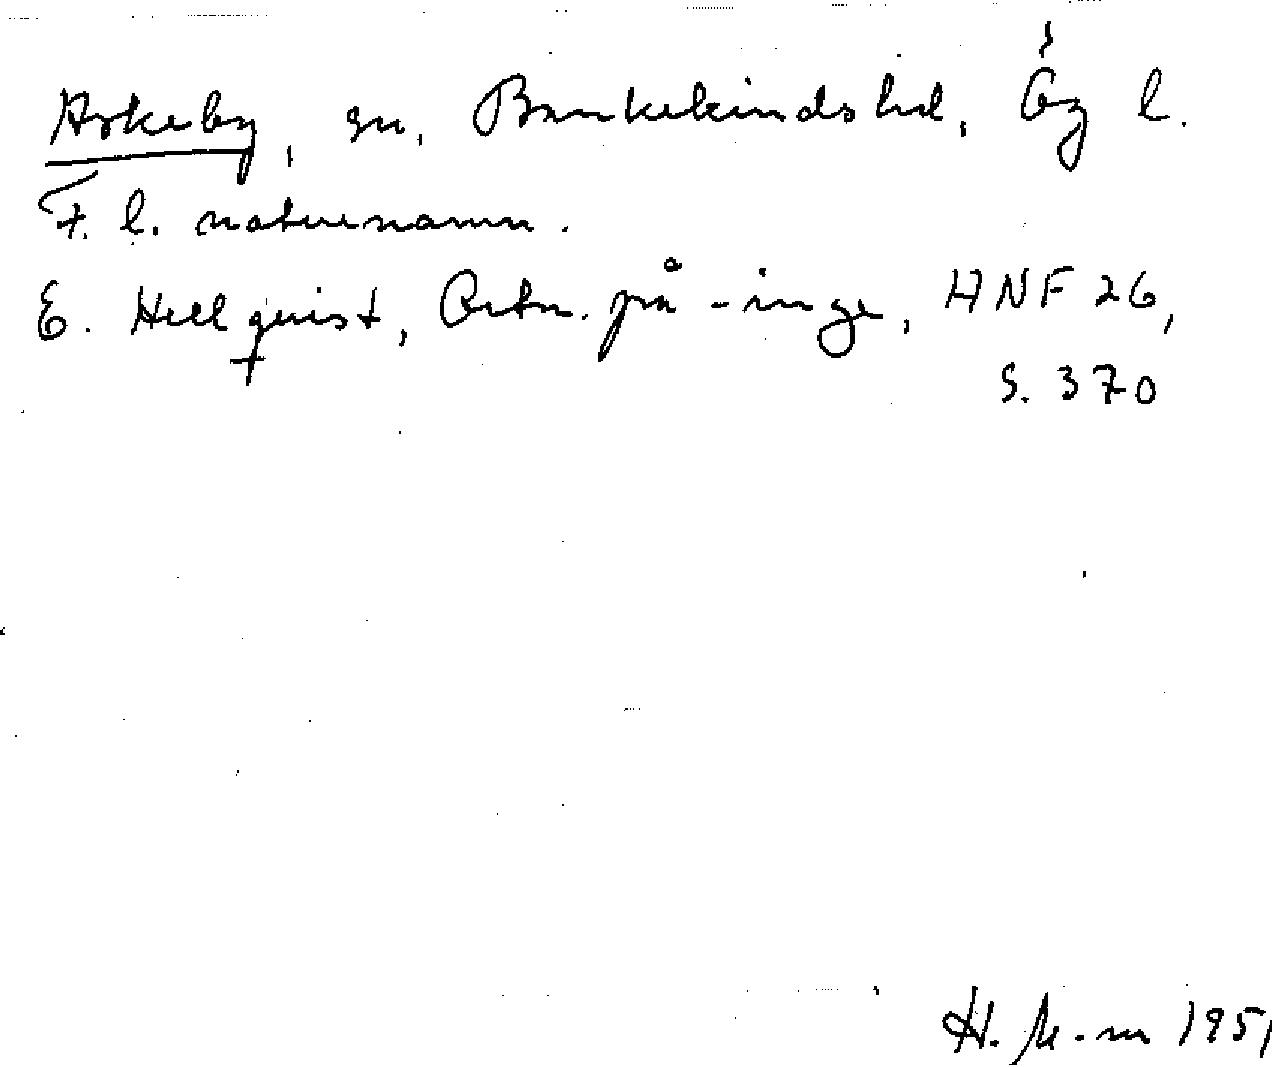 Askeby, sn, Bankekinds hd, Ög l.
F. l. naturnamn.
E. Hellquist, Ortn. på -inge, HNF 26,
S. 370
H. 1951